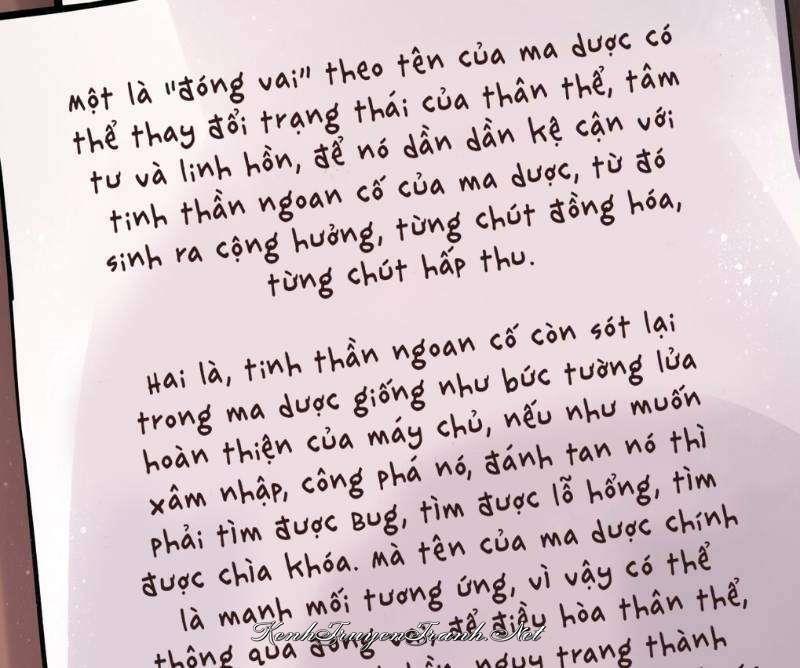 Một là "đóng vai" theo tên của ma dược có
thể thay đổi trạng thái của thân thể, tâm
tư và linh hồn, để nó dần dần kệ cận với
tinh thần ngoan cố của ma dược, từ đó
sinh ra cộng hưởng, từng chút đồng hóa,
từng chút hấp thu.
Hai là, tinh thần ngoan cố còn sót lại
trong ma dược giống như bức tường lửa
hoàn thiện của máy chủ, nếu như muốn
xâm nhập, công phá nó, đánh tan nó thì
phải tìm được Bug, tìm được lỗ hổng, tìm
được chìa khóa. Mà tên của ma dược chính
là manh mối tương ứng, vì vậy có thể
thông qua đóng vai để điều hòa thân thể,
KenhTruyenTranh.Net
nguy trang thành